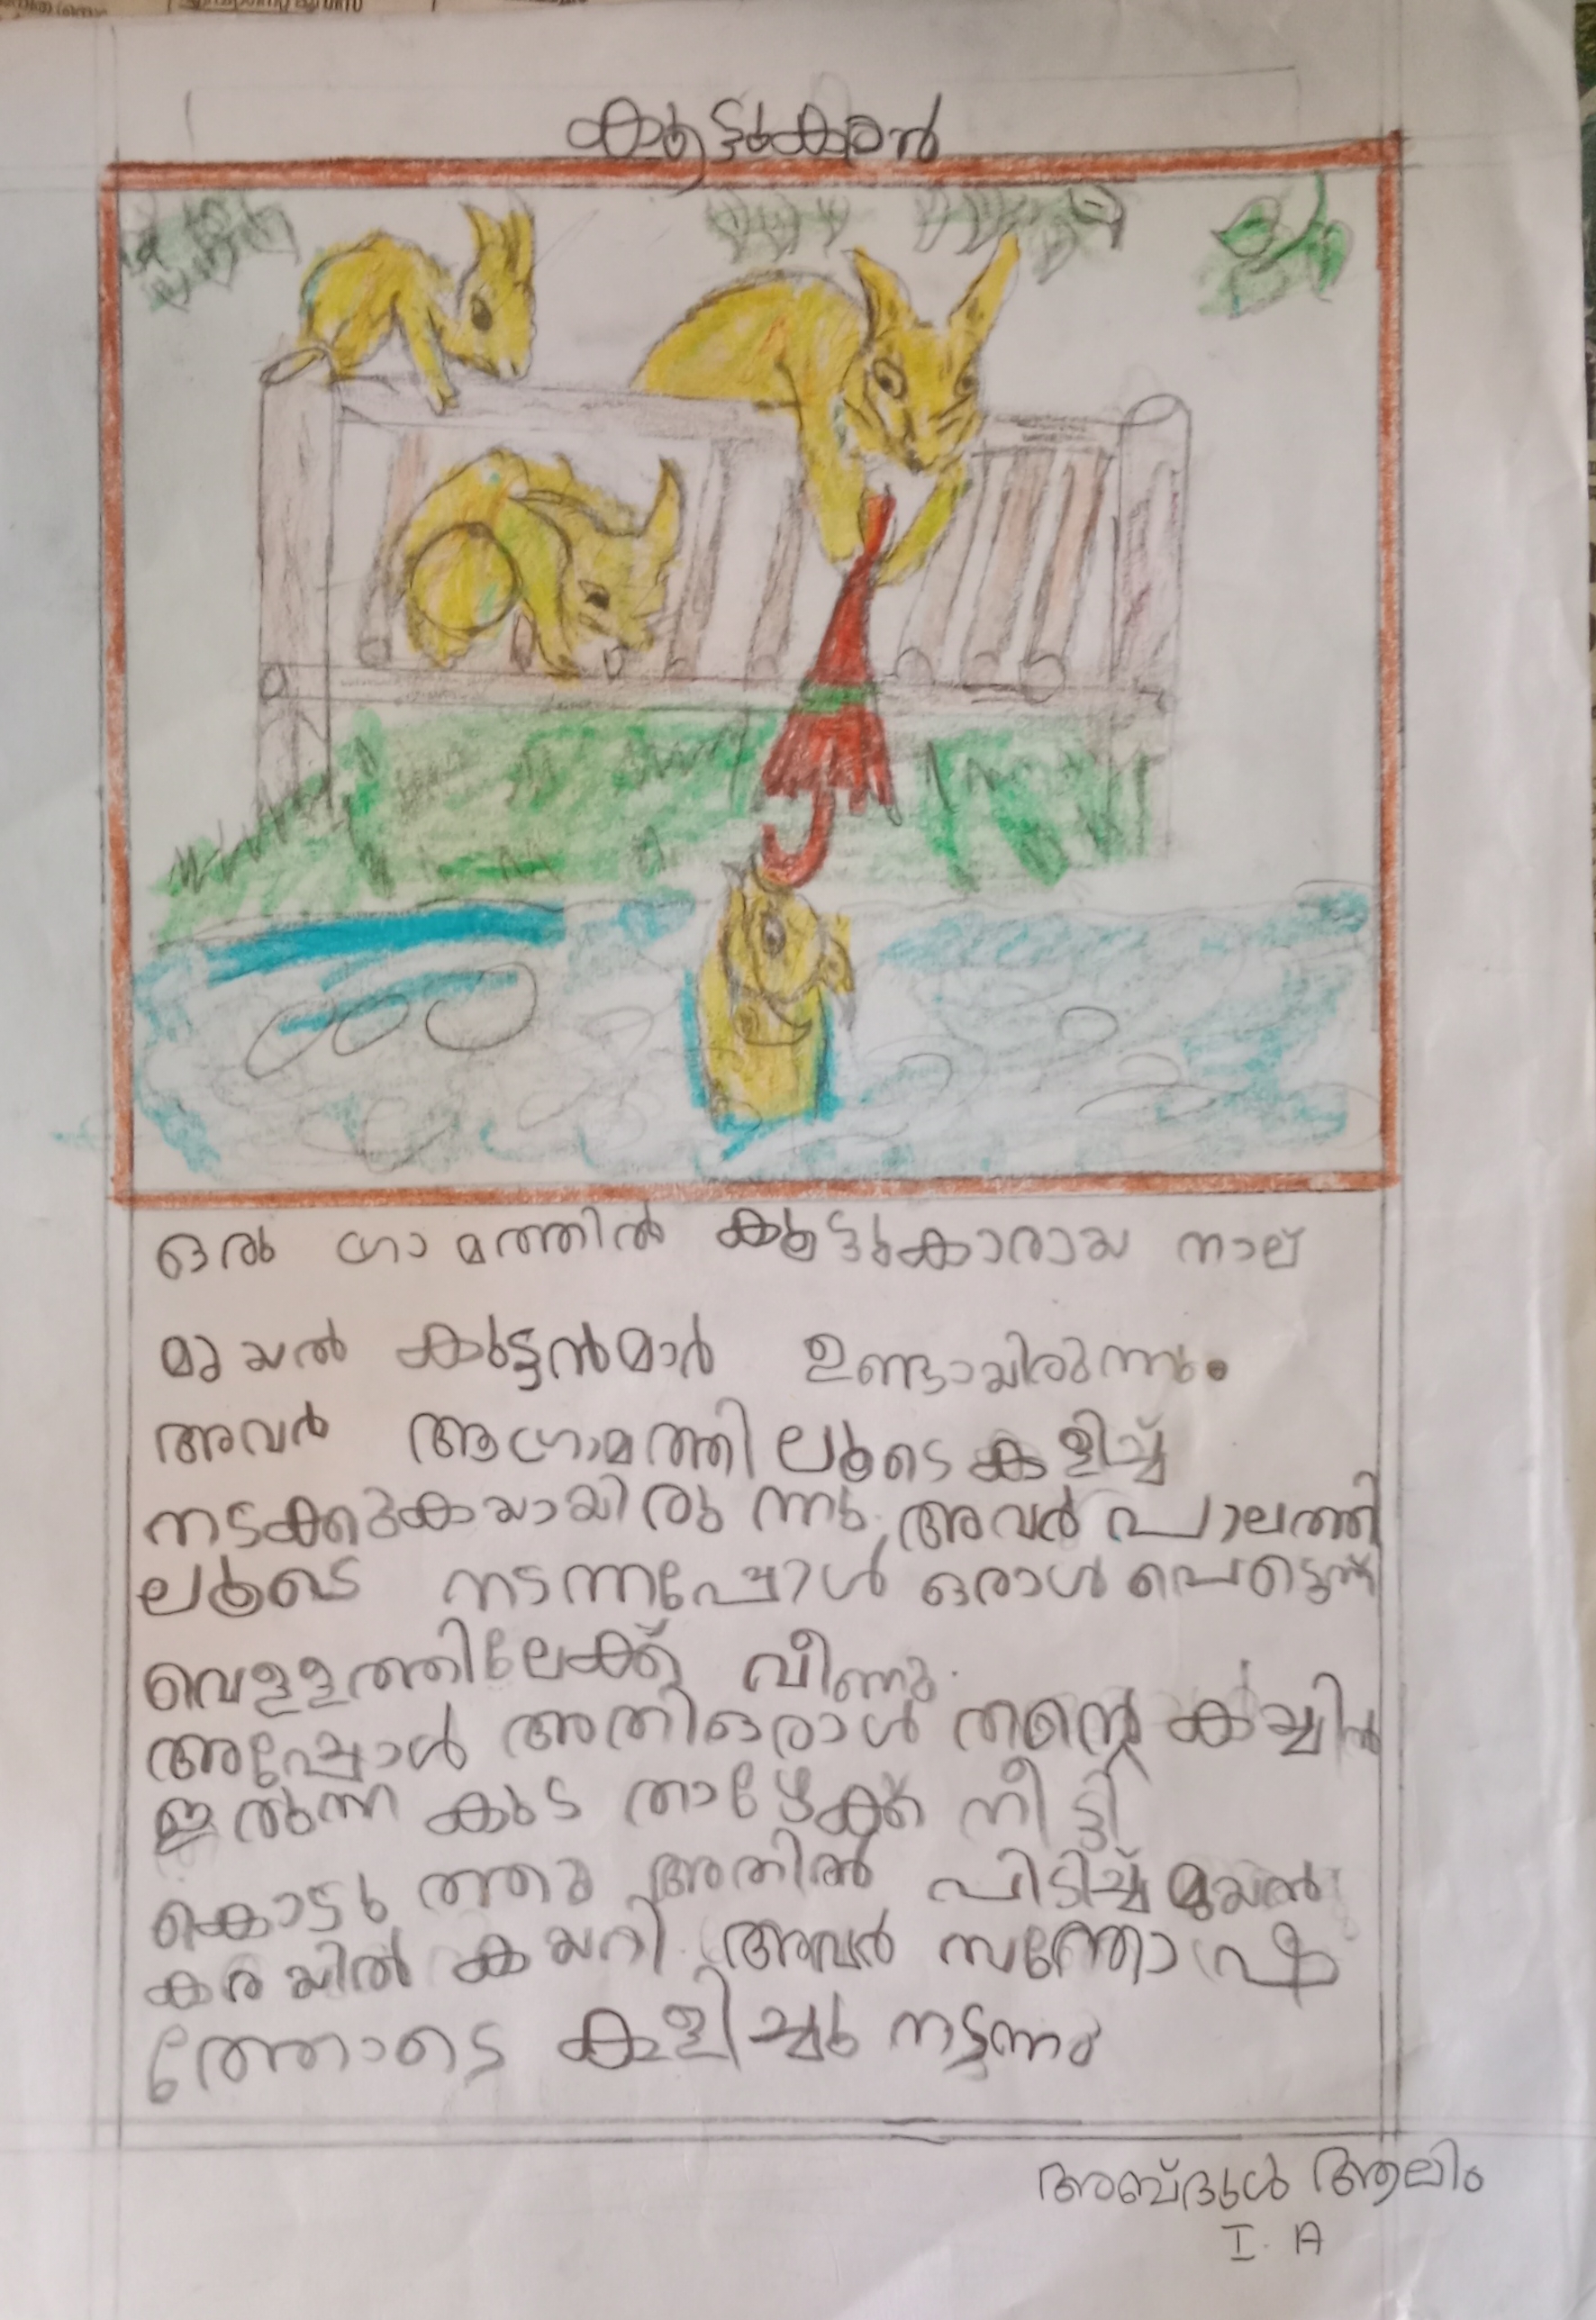 കൂട്ടുകാരൻ
ഒരു ഗ്രാമത്തിൽ കൂട്ടുകാരായ നാല്
മുയൽ കുട്ടൻമാർ ഉണ്ടായിരുന്നു.
അവർ ആഗ്രാമത്തിലൂടെ കളിച്ച്
നടക്കുകയായിരുന്നു, അവർ പാലത്തി
ലൂടെ നടന്നപ്പോൾ ഒരാൾ പെട്ടെന്ന്
വെള്ളത്തിലേക്ക് വീണു.
അപ്പോൾ അതിഒരാൾ തന്റെ കയ്യിൽ
ഇരുന്ന കുട താഴേക്ക് നീട്ടി
കൊടുത്തു അതിൽ പിടിച്ച് മുയൽ
കരയിൽ കയറി. അവർ സന്തോഷ
ത്തോടെ കളിച്ചു നടന്നു
അബ്ദുൾ ആലിം
I. A